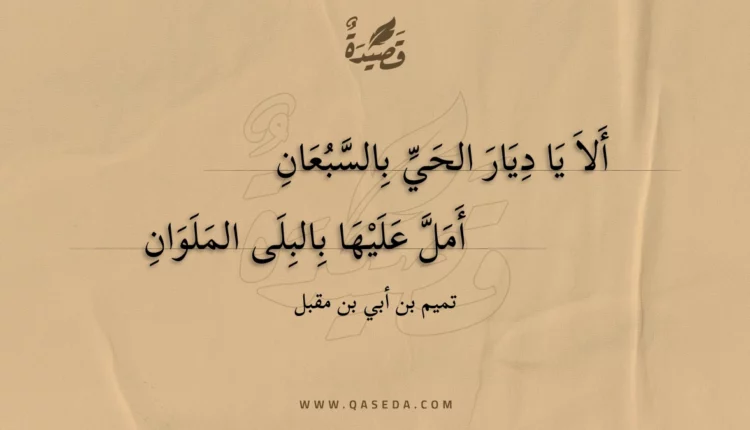 قَصِيدَةٌ
أَلاَ يَا دِيَارَ الحَيِّ بِالسَّبُعَانِ
أَمَلَّ عَلَيْهَا بِالبِلَى المَلَوَانِ
تميم بن أبي بن مقبل
WWW.QASEDA.COM